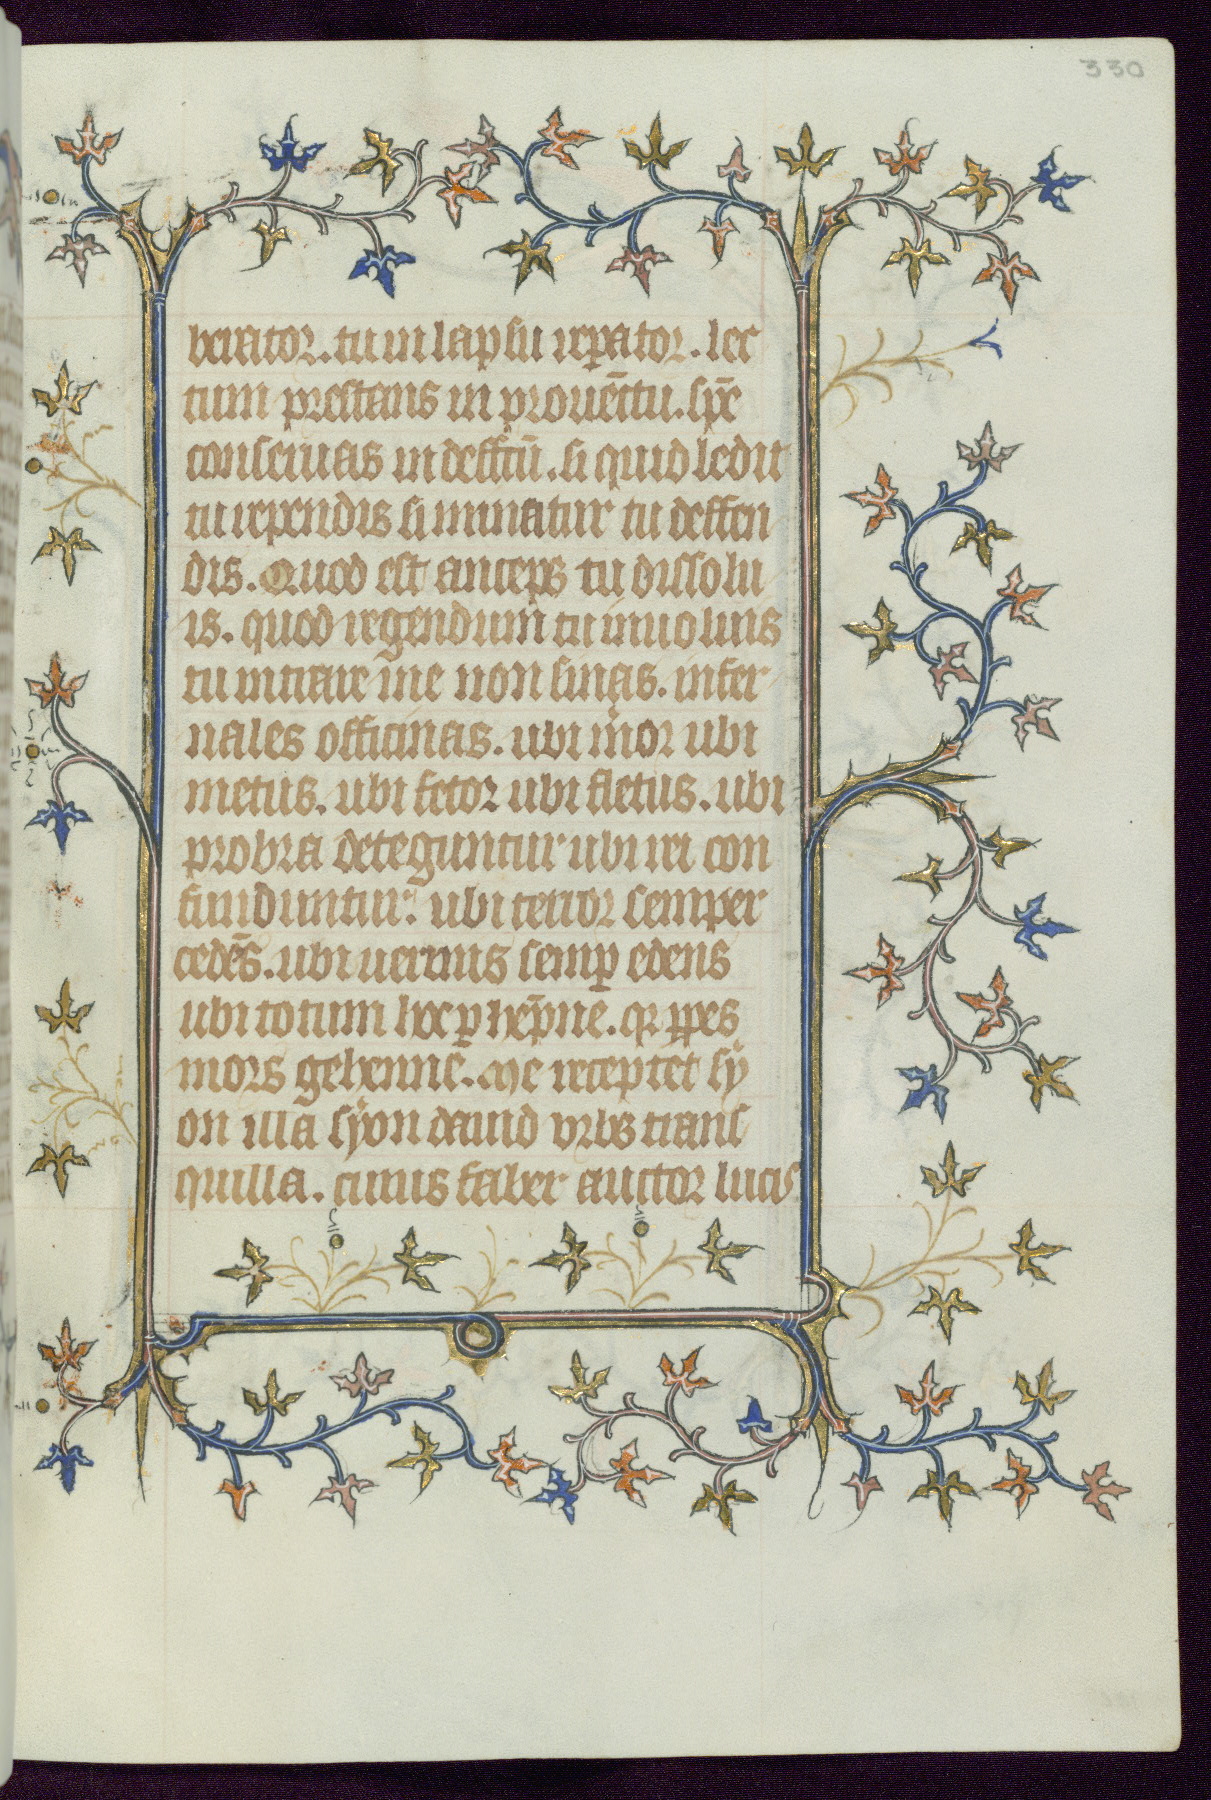 330
berator. tu in lapsu repator. lec
tum prestans in prouētu. spē
conseruas in deffctū. si quid ledit
tu rependis si minatur tu deffen
dis. Quod est anceps tu dissolu
is. quod regendum tu inuoluis
tu intrare me non sinas. infer
nales officinas. ubi meror ubi
metus. ubi fetor ubi fletus. ubi
probra deteguntur ubi rei con
funduntur. ubi tertor semper
cedēs. ubi uermis semp edens
ubi totum hec p hēpne. qr ppes
mors gehenne. Me receptet sy
on illa syon dauid vrbs trans
quilla. cuius faber auctor lucis